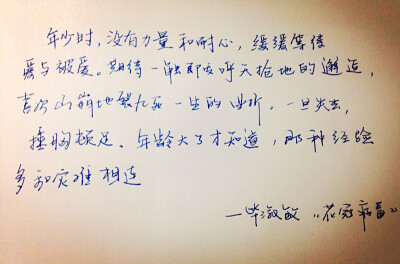 年少时,没有力量和耐心,缓缓等待
爱与被爱。期待一触即发呼天抢地的邂逅,
喜欢山崩地裂九死一生的。一旦失去,
捶胸顿足、年龄大了才知道,那种经验
多和灾难相连
—毕淑敏《花冠病毒》